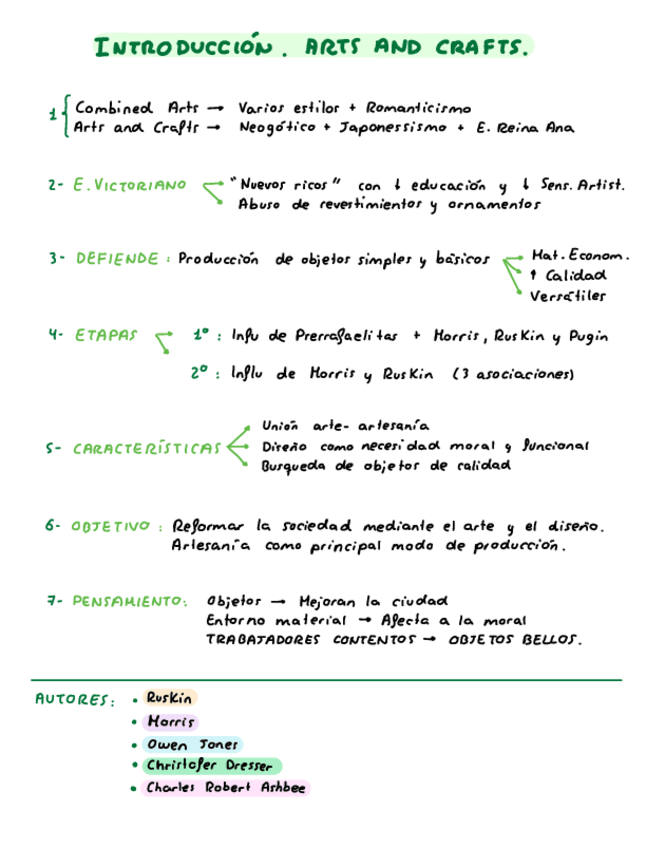 INTRODUCCIÓN. ARTS AND CRAFTS.
1 Combined Arts → Varios estilos + Romanticismo
Arts and Crafts → Neogótico + Japonessismo + E. Reina Ana
2- E. VICTORIANO "Nuevos ricos" con ↓ educación y ↓ Sens. Artist.
Abuso de revestimientos y ornamentos
3- DEFIENDE : Producción de objetos simples y básicos Mat. Econom.
↑ Calidad
Versátiles
4- ETAPAS 1º : Infu de Prerrafaelitas + Morris, Ruskin y Pugin
2º : Influ de Morris y Ruskin (3 asociaciones)
5- CARACTERÍSTICAS Unión arte- artesanía
Diseño como necesidad moral y funcional
Busqueda de objetos de calidad
6- OBJETIVO : Reformar la sociedad mediante el arte y el diseño.
Artesanía como principal modo de producción.
7- PENSAMIENTO: Objetos → Mejoran la ciudad
Entorno material → Afecta a la moral
TRABAJADORES CONTENTOS → OBJETOS BELLOS.
AUTORES: • Ruskin
• Morris
• Owen Jones
• Christofer Dresser
• Charles Robert Ashbee